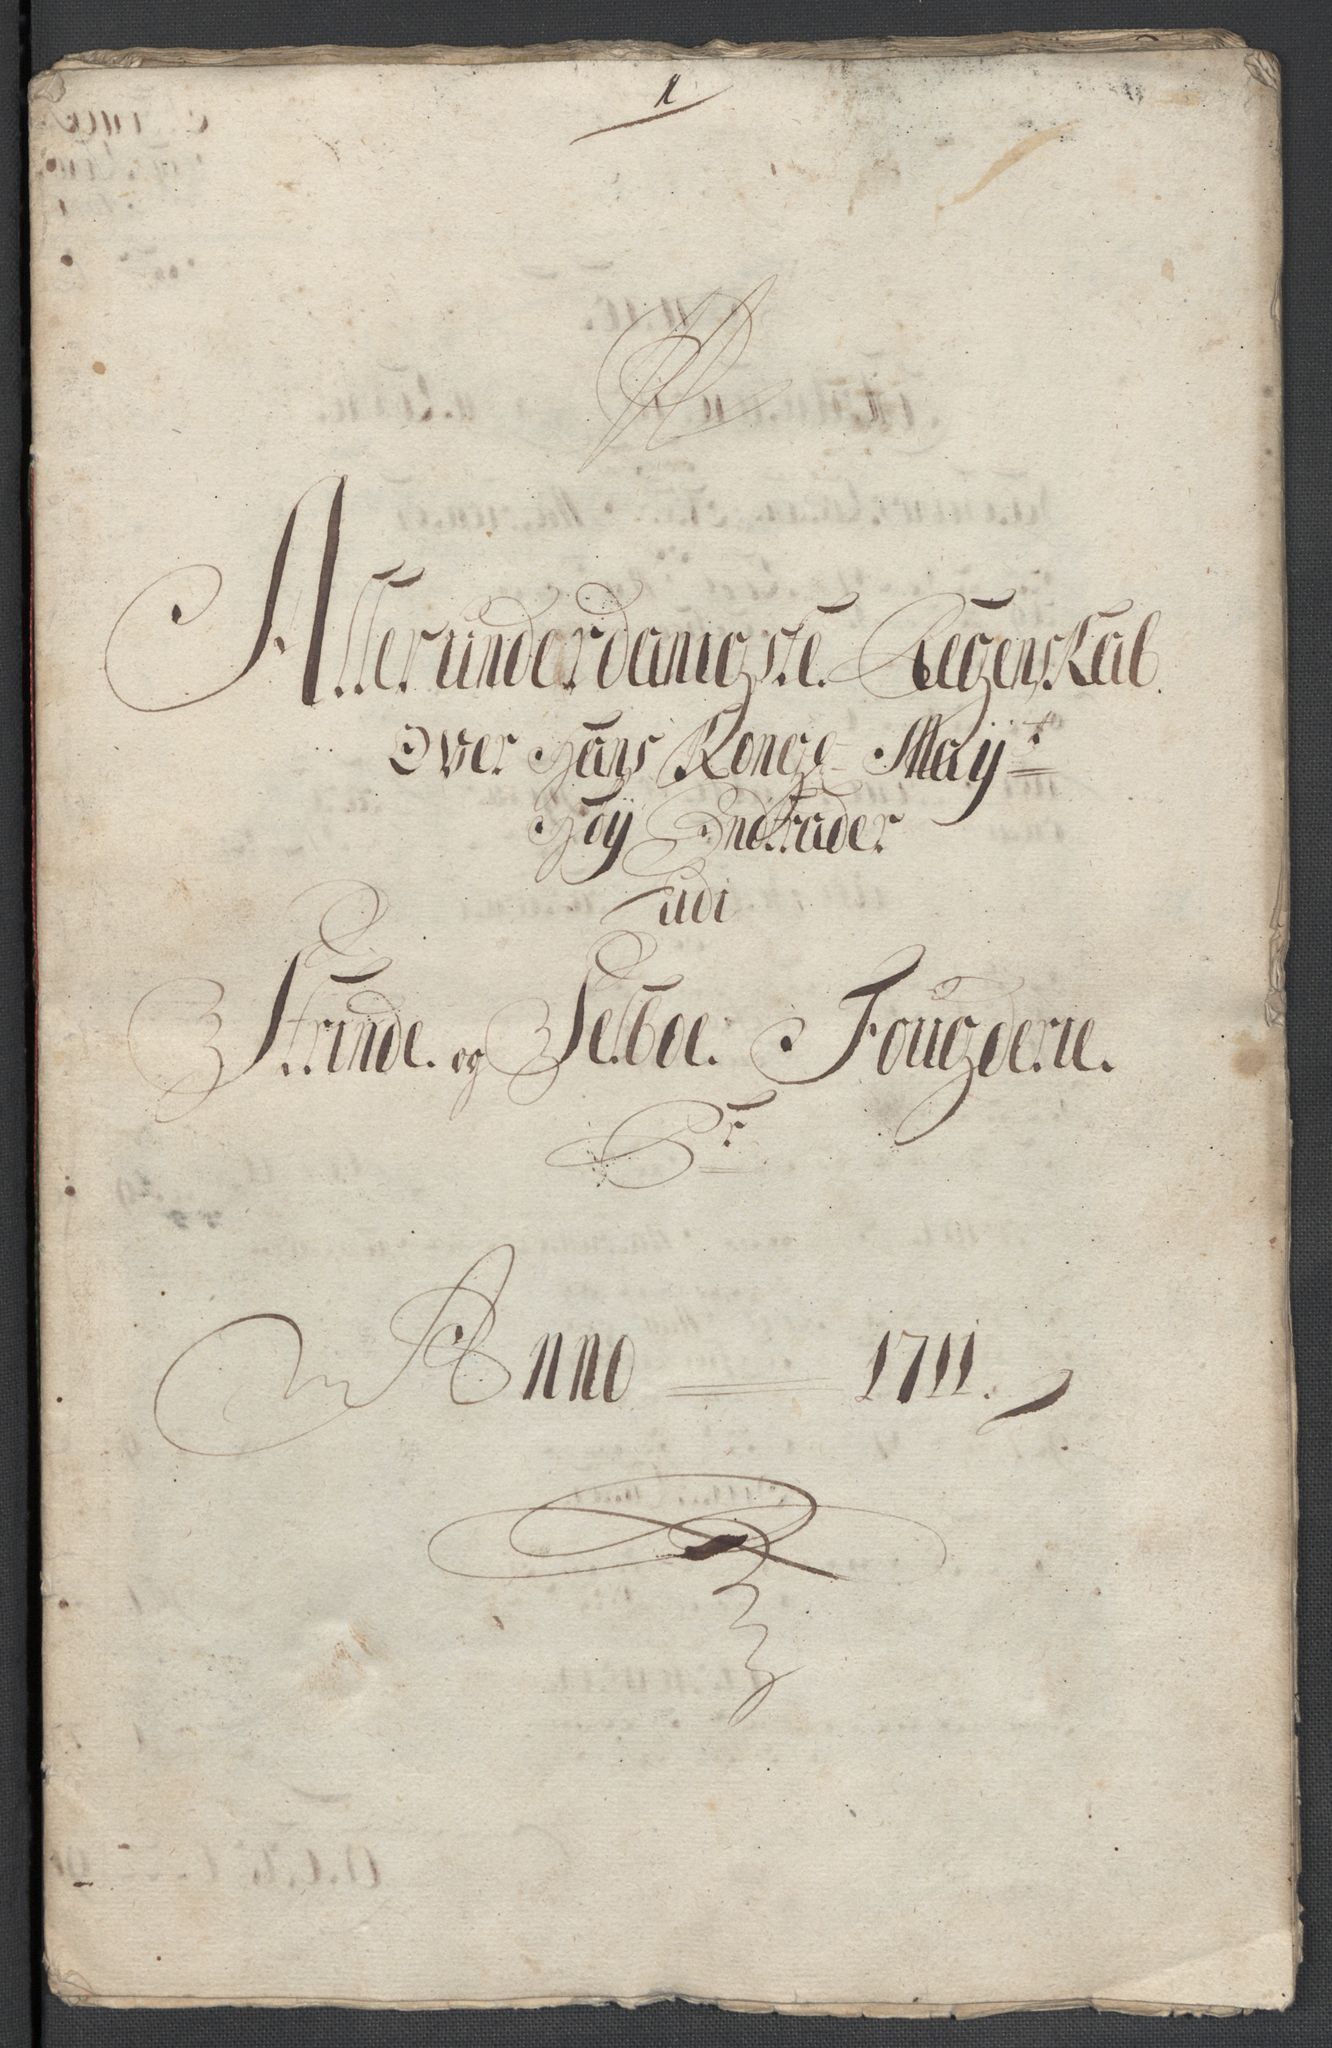 1
Allerunderdanigste Regenskab
Over Hans Konge May:t
Höy Indtrader
udi
Strinde og Selboe Fougderie
Pr
Anno 1711.